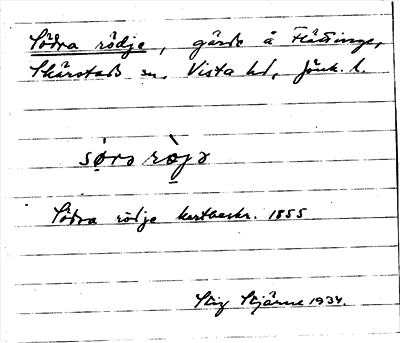 Södra rödje, gärde å Flättinge,
Skärstads sn, Vista hd, Jönk. l.
sø̣rа rò̱jə
Södra rödje kartbeskr. 1855
Stig Stjärne 1934.